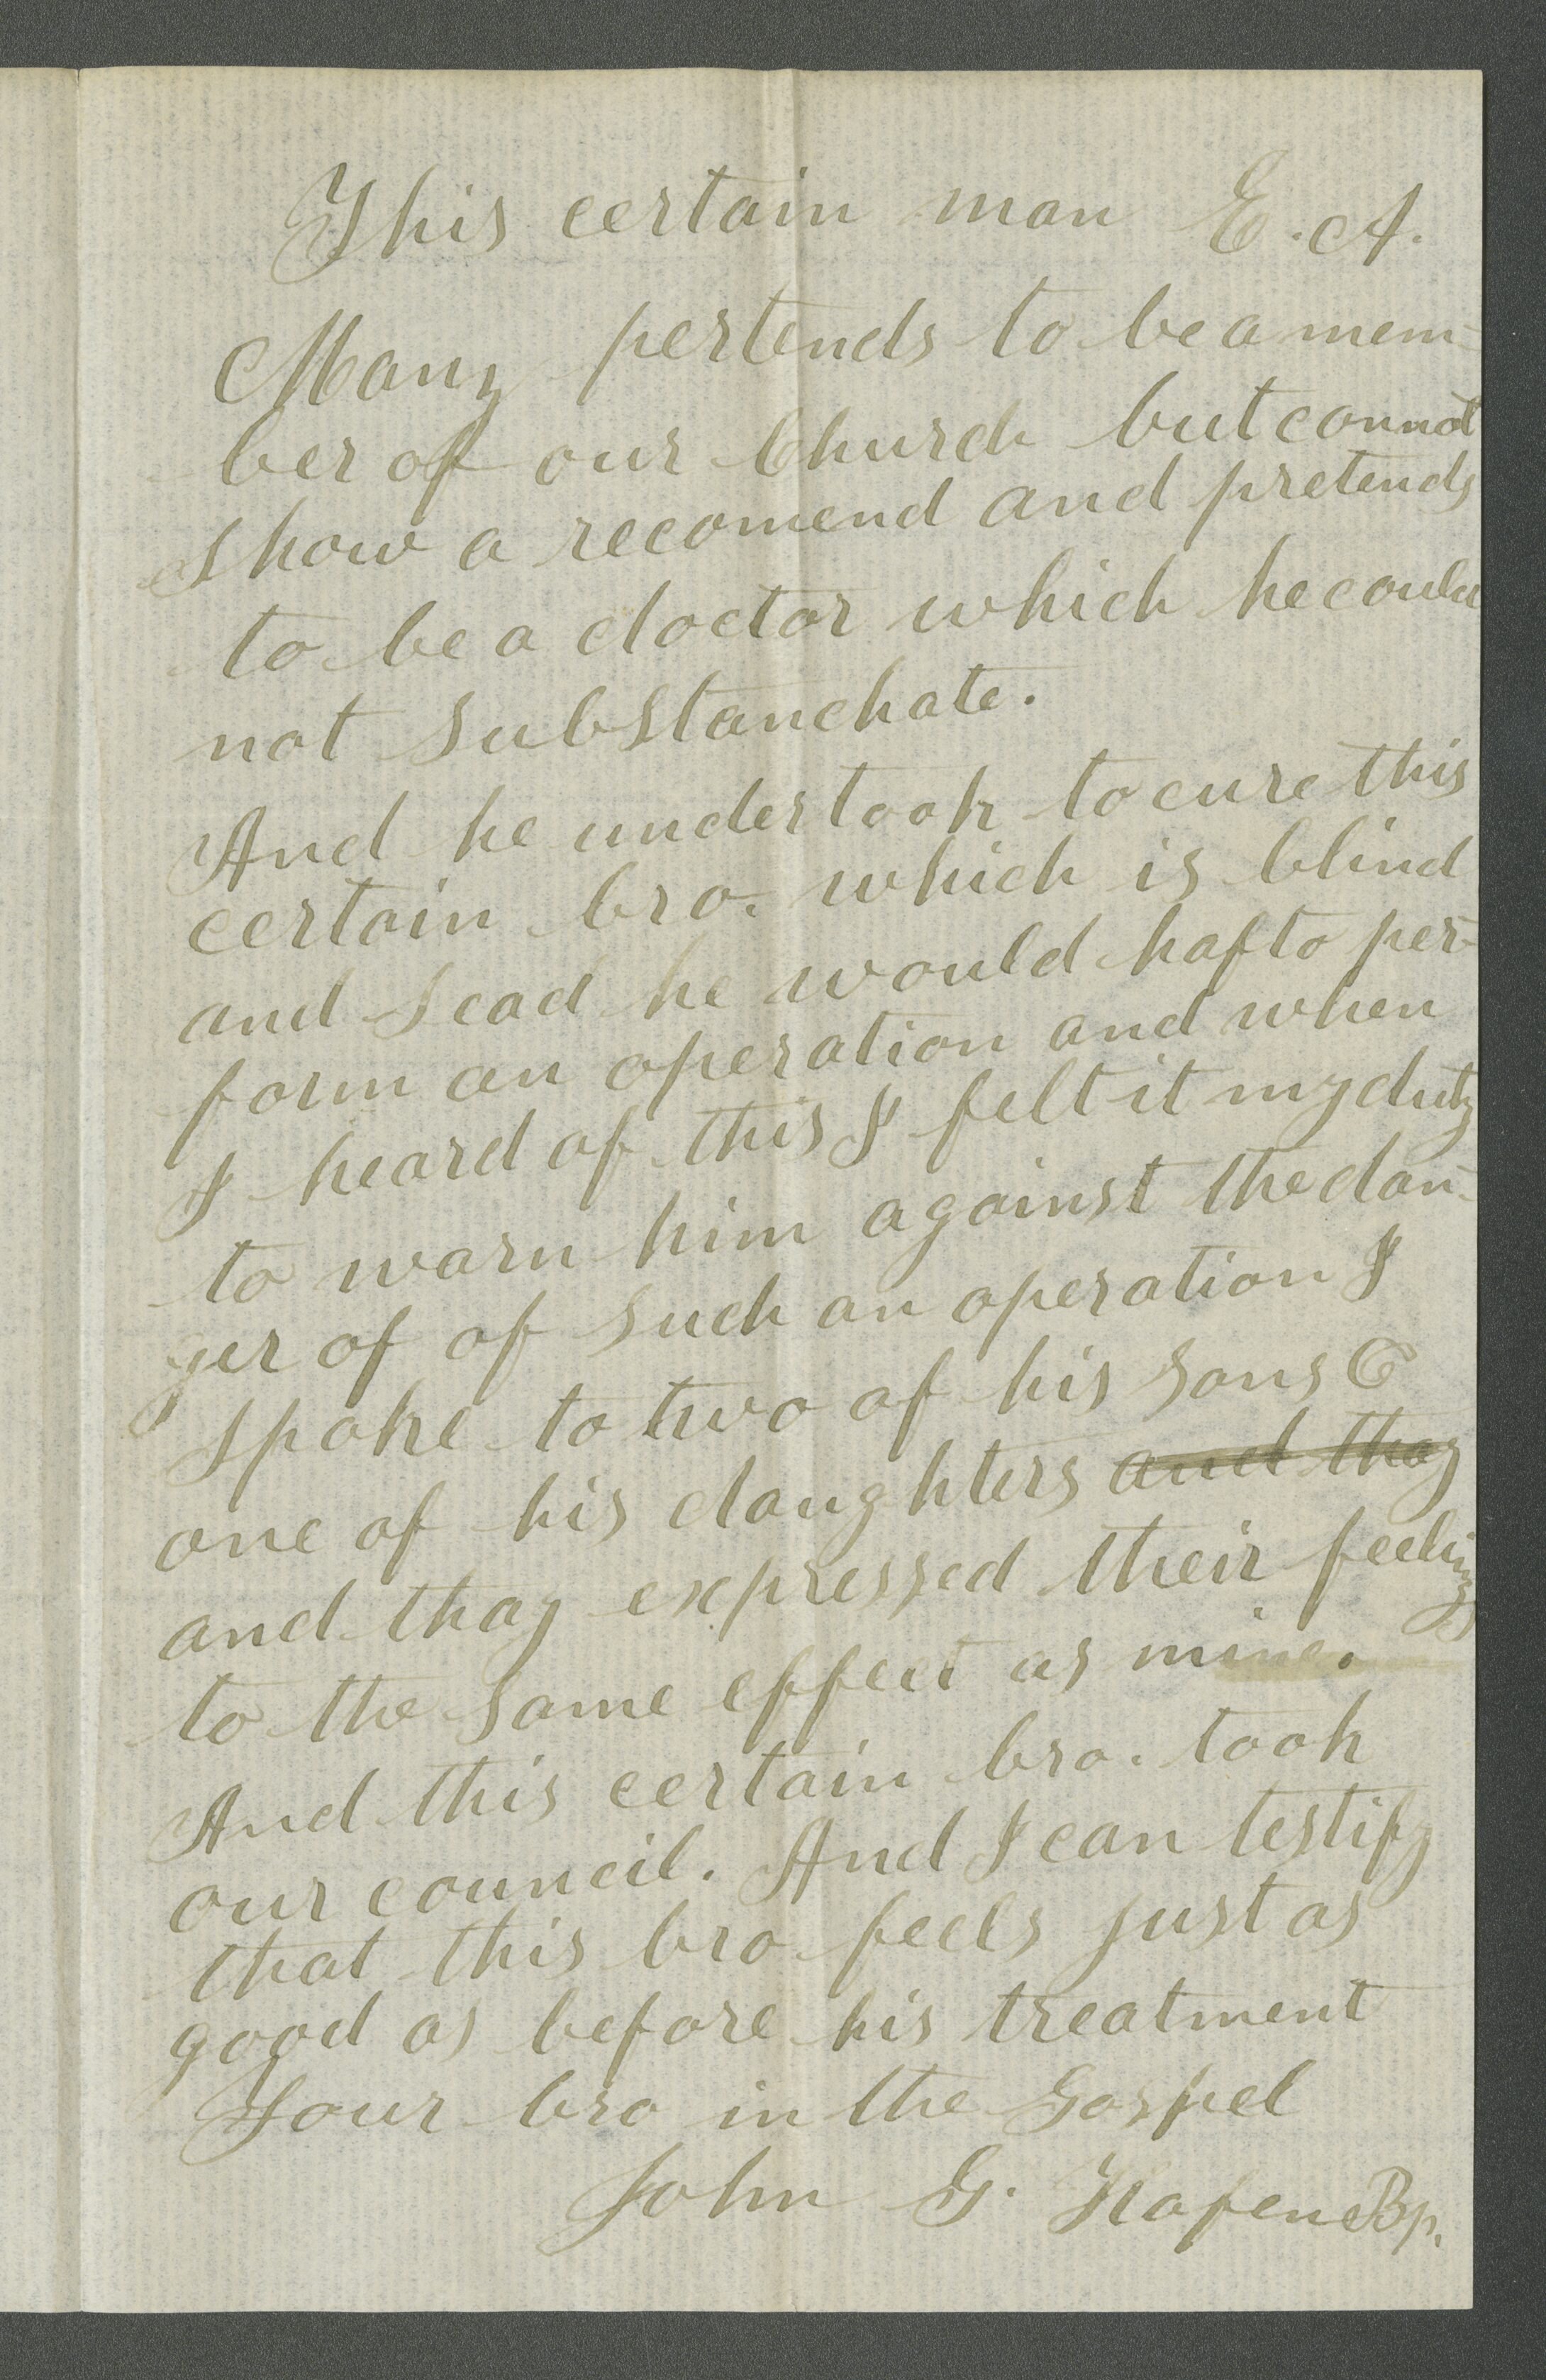 This certain man E. A.
Many pertends to be a mem-
ber of our Church but connot
show a recomend and pretends
to be a doctor which he could
not substanchate.
And he undertook to cure this
certain bro. which is blind
and sead he would hafto per-
form an operation and when
I heard of this I felt it my duty
to warn him against the dan-
ger of of such an operation I
spoke to two of his sons &
one of his daughters and thay
and thay expressed their feelings
to the same effect as mine.
And this certain bro. took
our council. And I can testify
that this bro feels just as
good as before his treatment
Your bro in the Gospel
John G. Hafen Bp.